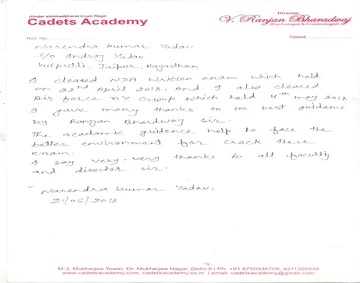 Cadets Academy
Director
V. Ranjan Bharadwaj
Ref. No.
Dated
Narendra kumar Yadav
S/o Indraj Yadav
Kotputli, Jaipur, Rajasthan
I cleared NDA written exam which held
on 22nd April 2018. And I also cleared
Air force "Y" Group which held 4th may 2018
I gave many thanks to the best guidance
by Ranjan Bhardwaj Sir.
The academic guidence help to face the
better environment for crack there
exam.
I say very-very thanks to all faculty
and director sir.
Narendra kumar Yadav.
21/06/2018
M-3, Mukherjee Tower, Dr. Mukherjee Nagar, Delhi-9 | Ph.
www.cadetsacademy.com, cadetsacademy.co.in | email: cadetsacademy@gmail.com